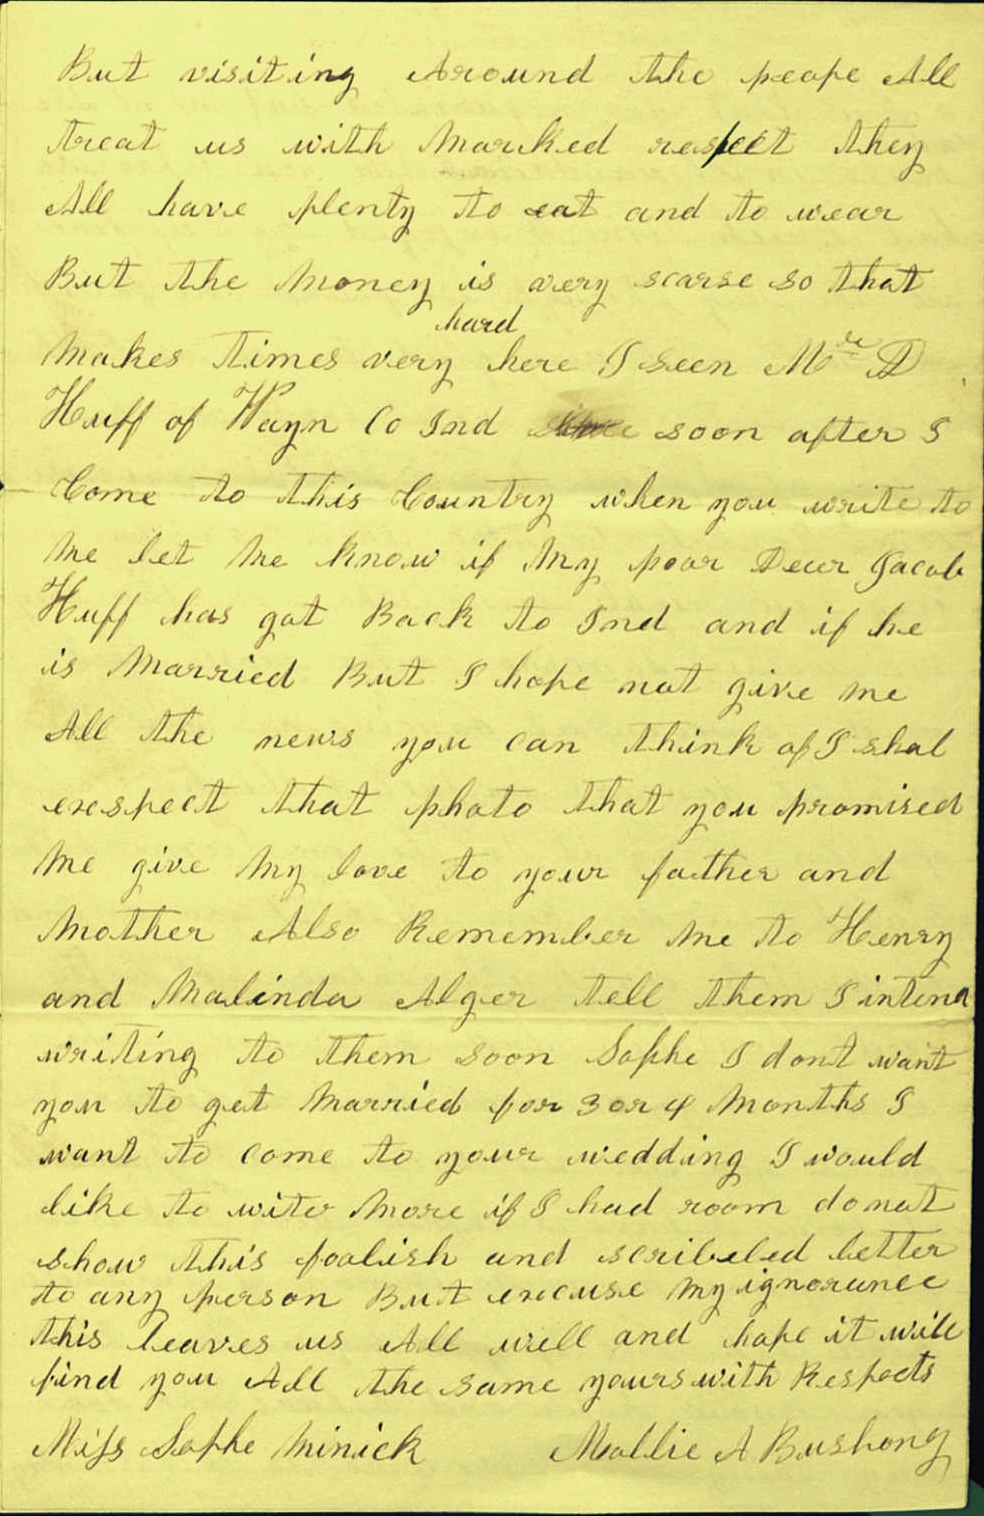 But visiting Around the peope All
treat us with Marked respect they
All have plenty to eat and to wear
But the Money is very scarse so that
hard
Makes times very here I seen Mr D
Huff of Wayn Co Ind soon after I
Come to this Country when you write to
Me let Me know if My poor Dear Jacob
Huff has got Back to Ind and if he
is Married But I hope not give me
All the news you can think of I shal
exspect that photo that you promised
Me give My love to your father and
Mother Also Remember Me to Henry
and Malinda Alger tell them I intend
writing to them soon Sophe I dont want
you to get Married for 3 or 4 Months I
want to come to your wedding I would
like to wite More if I had room do not
show this foolish and scribeled letter
to any person But excuse My ignorance
this leaves us All well and hope it will
find you All the same yours with Respects
Miss Sophe Minick Mollie A Bushong